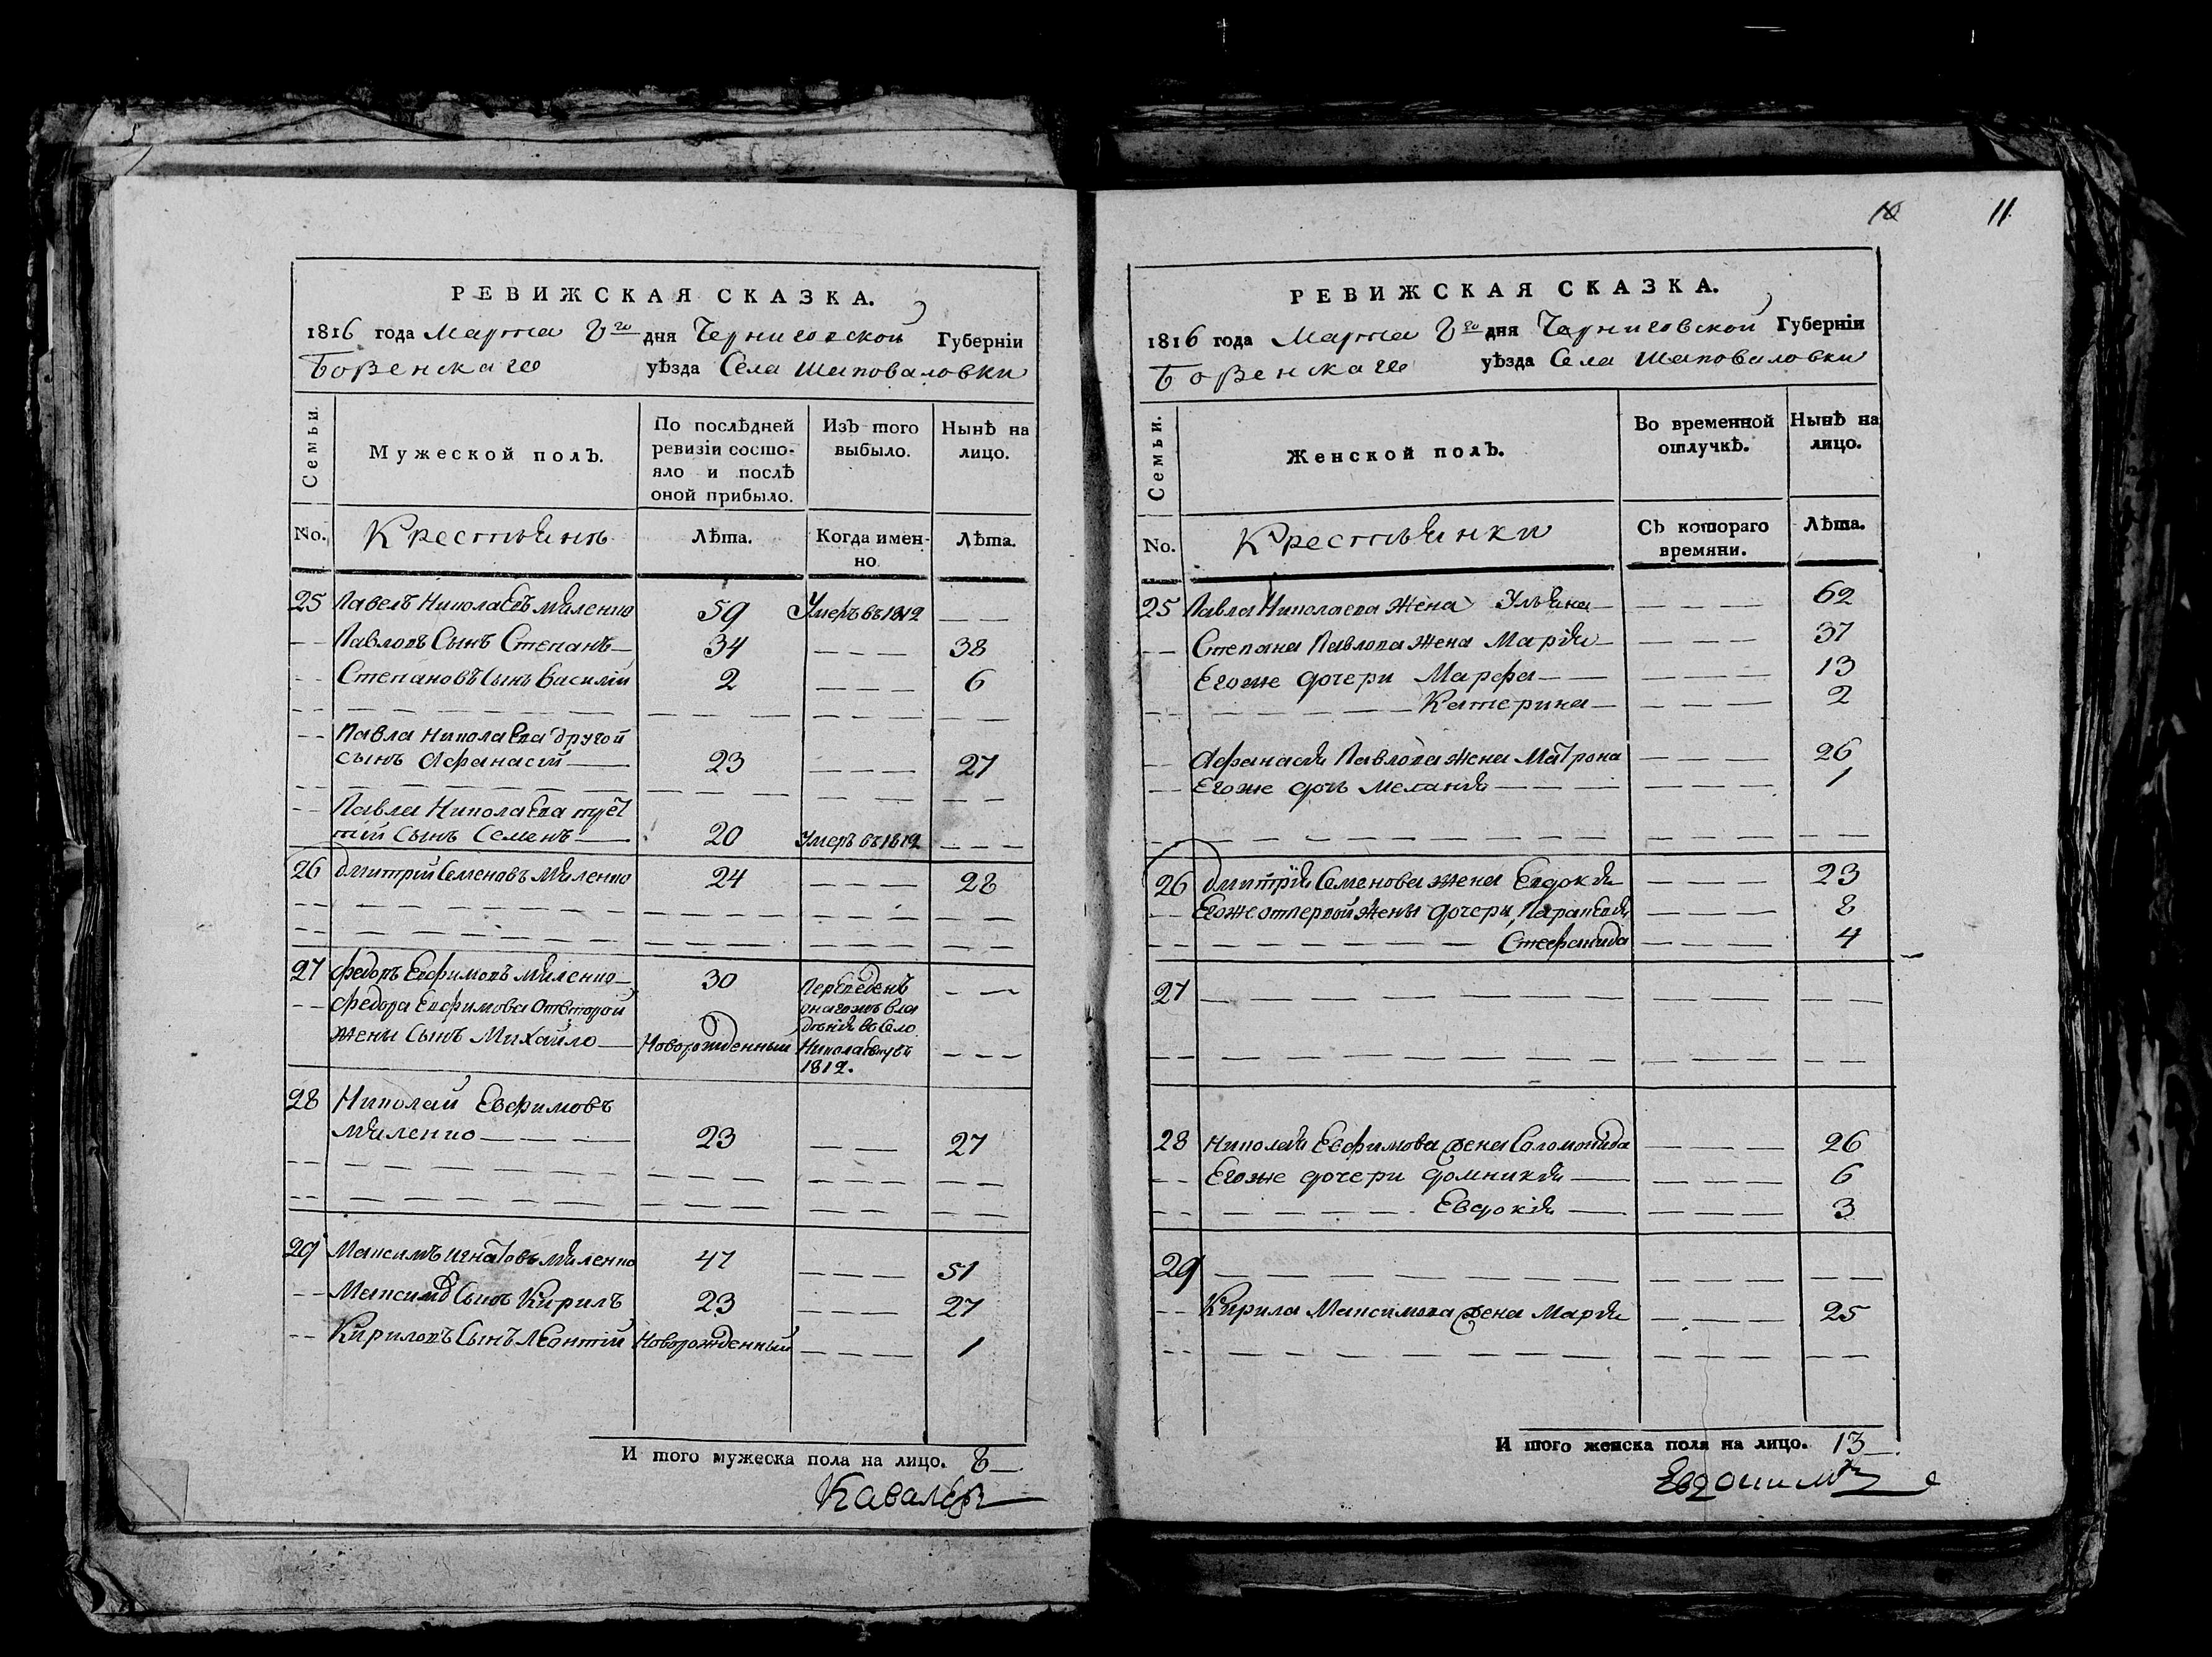 РЕВИЖСКАЯ СКАЗКА.
1816 года Марта 8го дня Черниговской Губерніи
Борзенскаго уѣзда Села Шаповаловки
Семьи.
Мужеской полъ.
По послѣдней
ревизіи состо-
яло и послѣ
оной прибыло.
Изъ того
выбыло.
Нынѣ на
лицо.
No. Крестьянъ Лѣта. Когда имен-
но.
Лѣта.
25 Павелъ Николаевъ Миленко 59 Умеръ въ 1812 — —
— — Павловъ Сынъ Степанъ — 34 — — — 38
— — Степановъ Сынъ Василій 2 — — — 6
— — Павла Николаева другой
сынъ Афанасій — 23 — — — 27
— — Павла Николаева трет
тій Сынъ Семенъ — 20 Умеръ въ 1812 — — —
26 Дмитрій Семеновъ Миленко 24 — — — 28
27 Федоръ Евфимовъ Миленко 30 Переведенъ — —
— — Федора Евфимова отвторой
жены Сынъ Михайло — Новорожденный — — —
дѣнія во Село
1812.
28 Николай Евфимовъ
Миленко — — — 23 — — 27
29 Максимъ Игнатовъ Миленко 47 — — — 51
— — Сынъ Кирилъ 23 — — — 27
— — Кириловъ Сынъ Леонтій Новорожденный — — — 1
И того мужеска пола на лицо. 8 —
Кавалеръ
10 11
РЕВИЖСКАЯ СКАЗКА.
1816 года Марта 8го дня Черниговской Губерніи
Борзенскаго уѣзда Села Шаповаловки
Семьи.
Женской полъ.
Во временной
отлучкѣ.
Нынѣ на
лицо.
No. Крестьянки Съ котораго
времяни.
Лѣта.
25 Павла Николаева Жена Ульяна — — — — 62
— — Степана Павлова жена Марія — — — — 37
Егоже дочери Марфа — — — — — 13
Катерина — — — — 2
— Афанасія Павлова жена Матрона — — — 26
— Егоже дочь Меланія — — — — — — 1
26 Дмитрія Семенова жена Евдокія — — — 23
— Егоже отпервой жены дочери, Параскевія — — — 8
Стефанида — — — 4
27
28 Николая Евфимова жена Соломонида — — — 26
— — Егоже дочери Домникія — — — — 6
Евдокія — — — — 3
29
— — Кирила Максимова жена Марія — — — 25
И того женска пола на лицо. 13 —